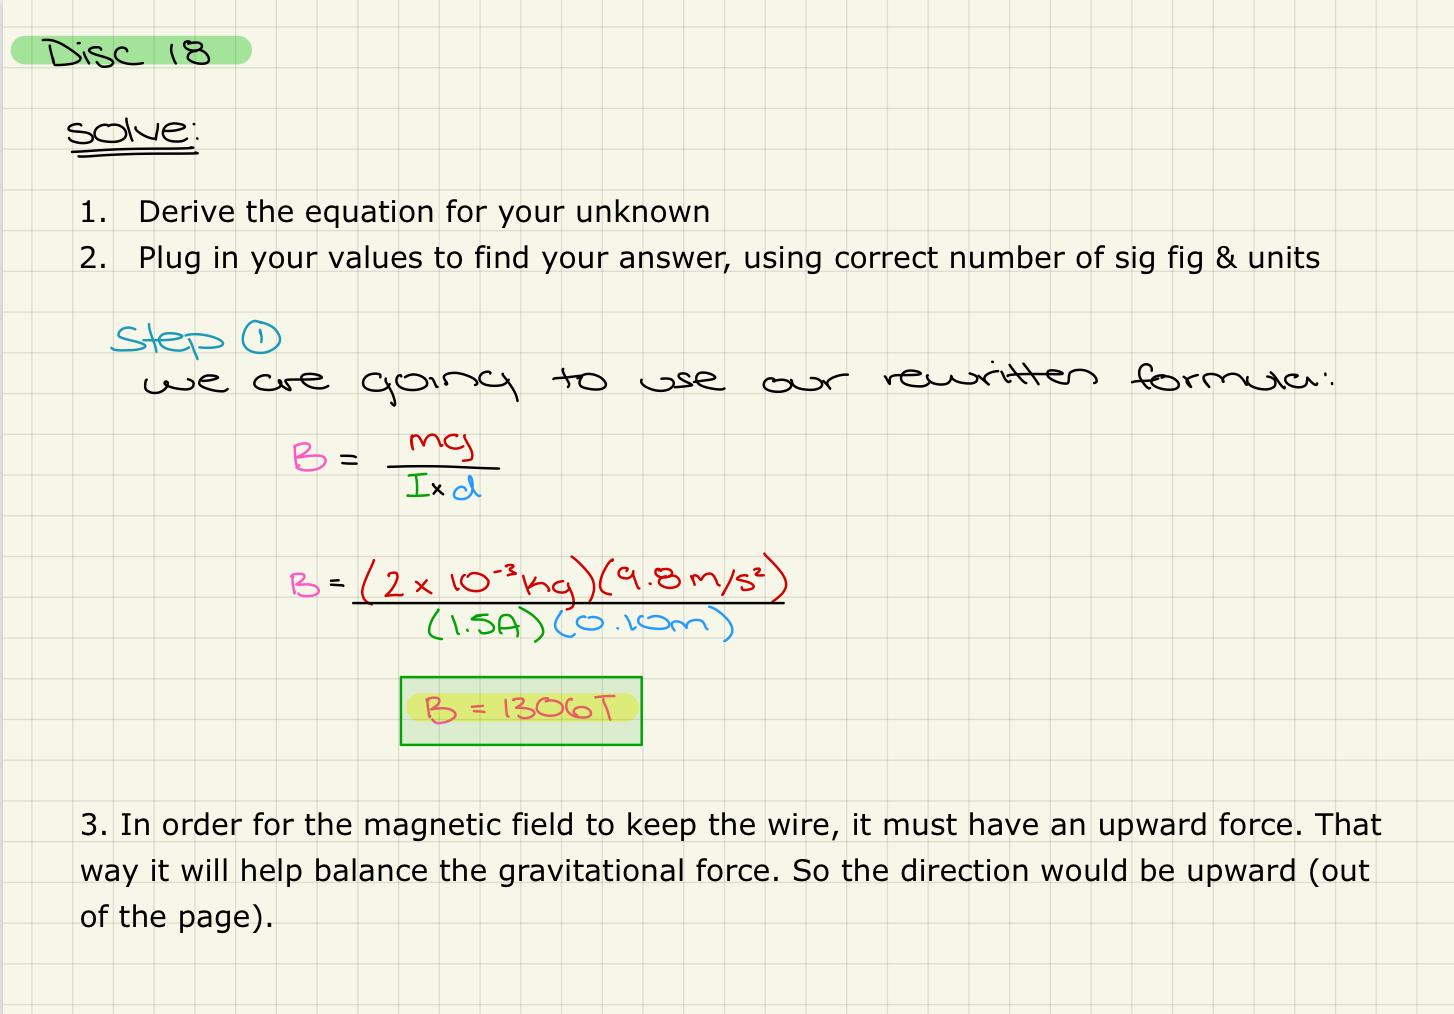 Disc 18
solve:
1. Derive the equation for your unknown
2. Plug in your values to find your answer, using correct number of sig fig & units
Step ①
we are going to use our rewritten formula:
B = mg / I × d
B = (2 × 10⁻³ kg)(9.8 m/s²) / (1.5A)(0.10m)
B = 1306T
3. In order for the magnetic field to keep the wire, it must have an upward force. That
way it will help balance the gravitational force. So the direction would be upward (out
of the page).